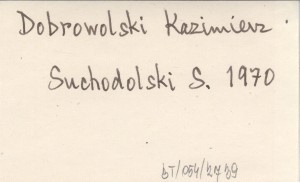 Dobrowolski Kazimierz
Suchodolski S. 1970
bT/054/2739